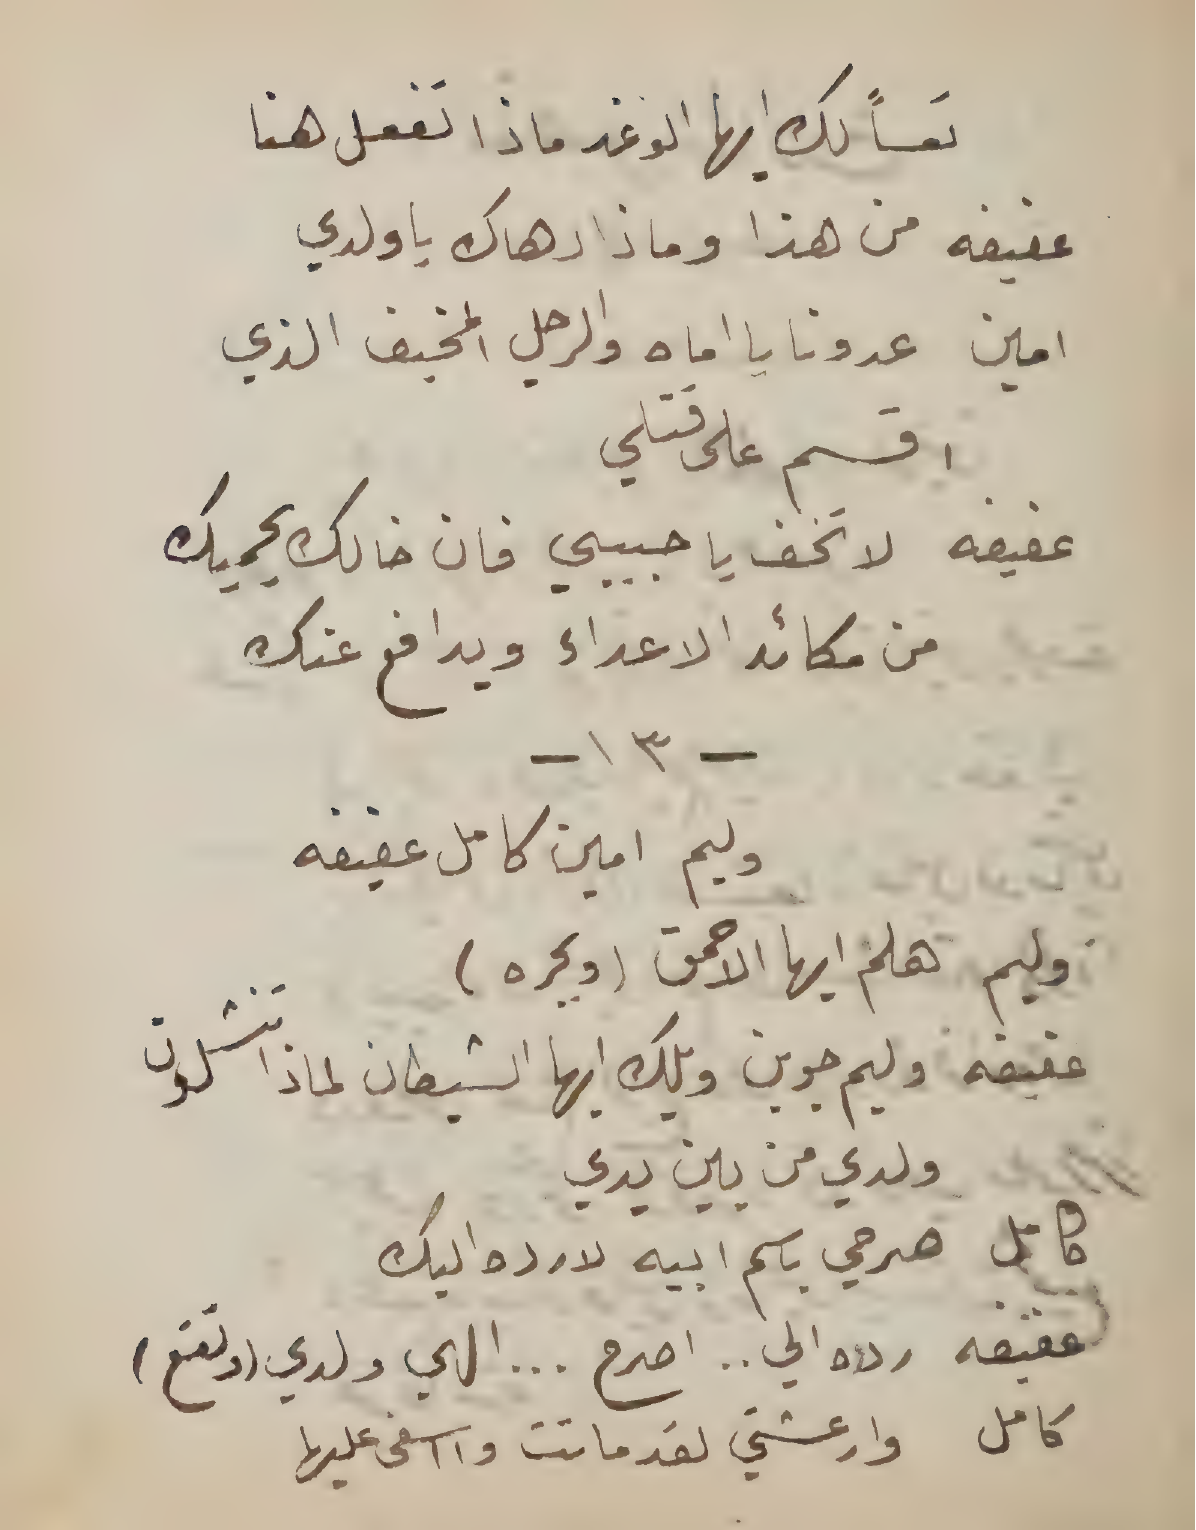 تعساً لك ايها الوغد ماذا تفعل هنا
عفيفه من هذا وماذا دهاك يا ولدي
امين عدونا يا اماه والرجل المخيف الذي
اقسم على قتلي
عفيفه لا تخف يا حبيبي فان خالك يحميك
من مكائد الاعداء ويدافع عنك
— ١٣ —
وليم امين كامل عفيفه
وليم هلم ايها الاحمق (ويجره)
عفيفه وليم جوين ويلك ايها الشيطان لماذا تنشلون
ولدي من بين يدي
كامل صرحي باسم ابيه لارده اليك
عفيفه رده الي.. اصرح ... الهي ولدي (وتقع)
كامل وارعشتي لقد ماتت وااسفى عليها